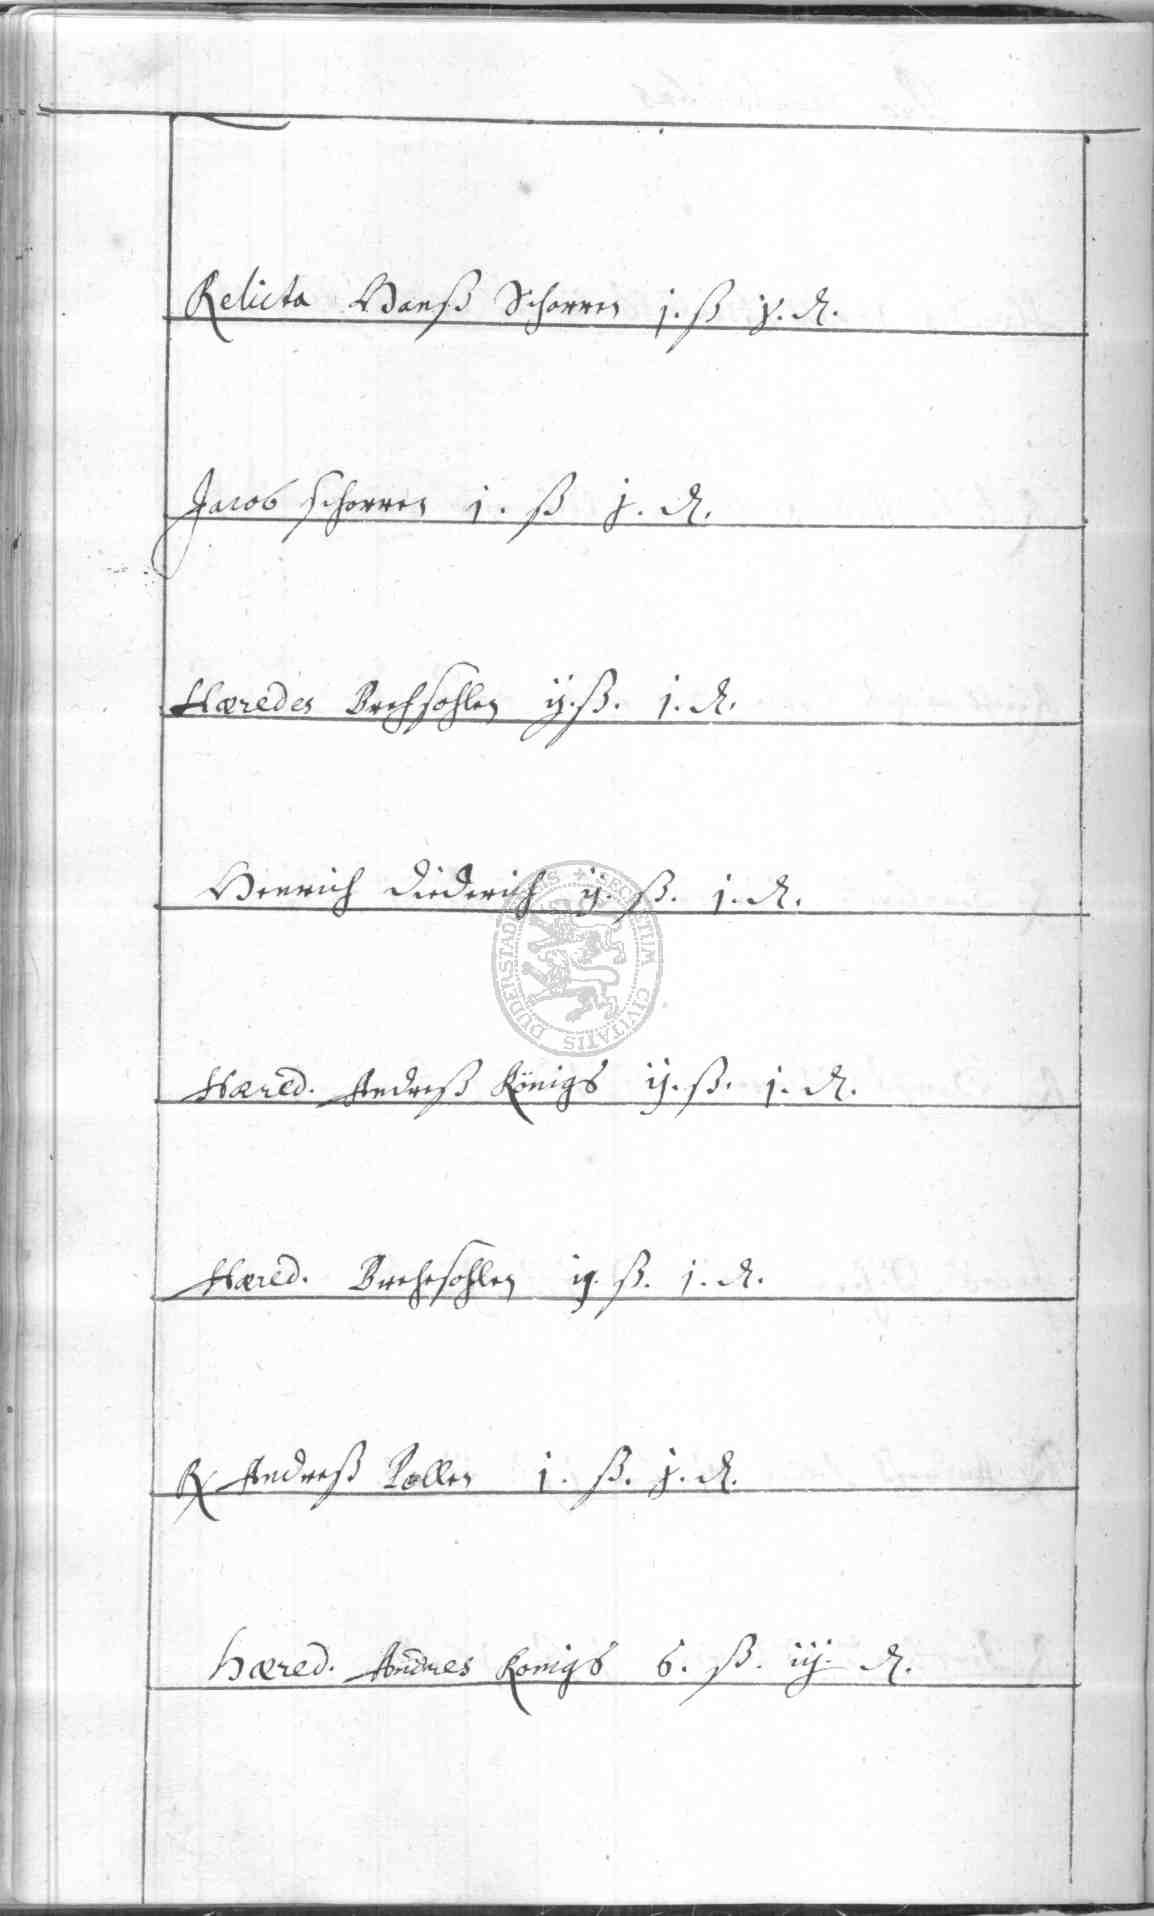 Relicta Hanß Schorren j. ß j. ₰.
Jacob schorren j. ß j. ₰.
Hæredes Brehsohlen ij. ß. j. ₰.
Henrich Diederich ij. ß. j. ₰.
SECRETUM CIVITATIS DUDERSTADENSIS
Hæred. Andreß Königs ij. ß. j. ₰.
Hæred. Brehesohlen ij. ß. j. ₰.
Andreß Pollen j. ß. j. ₰.
hæred. Andres Konigs 6. ß. iij. ₰.